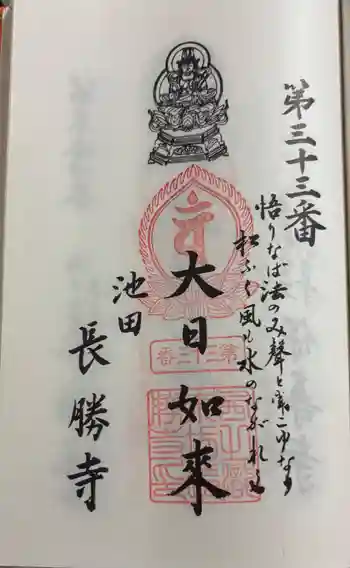 第三十三番
悟りなば法のみ聲と聞こゆなり
松ふく風も水のながれも
大日如來
池田
長勝寺
第三十三番